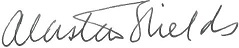 Alastair Shields